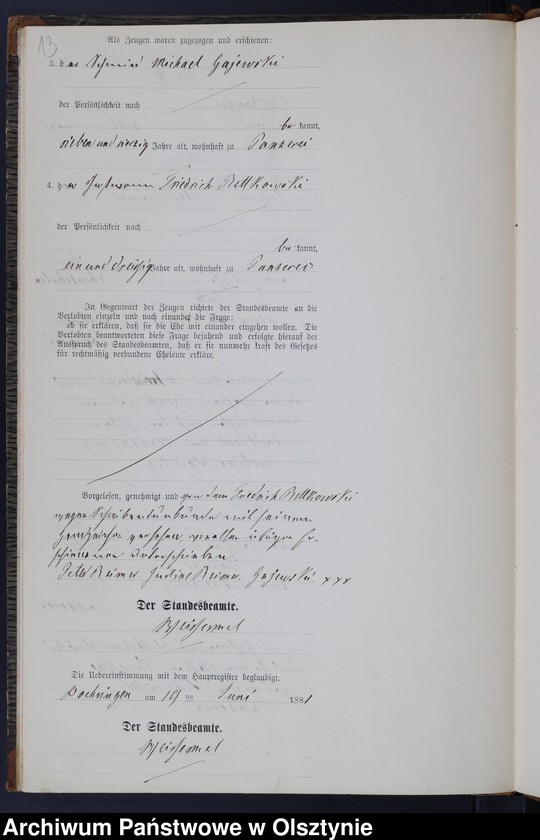 13
Als Zeugen waren zugezogen und erschienen:
3. der Schmied Michael Gajewski
der Persönlichkeit nach
be kannt,
sieben und vierzig Jahre alt, wohnhaft zu Panzerei
4. der Friedrich Rettkowski
der Persönlichkeit nach
be kannt,
ein und dreißig Jahre alt, wohnhaft zu Panzerei
In Gegenwart der Zeugen richtete der Standesbeamte an die
Verlobten einzeln und nach einander die Frage:
ob sie erklären, daß sie die Ehe mit einander eingehen wollen. Die
Verlobten beantworteten diese Frage bejahend und erfolgte hierauf der
Ausspruch des Standesbeamten, daß er sie nunmehr kraft des Gesetzes
für rechtmäßig verbundene Eheleute erkläre.
Vorgelesen, genehmigt und von dem Friedrich Rettkowski
wegen Schreibensunkunde mit seinem
Handzeichen versehen, von allen übrigen Er-
schienenen unterschrieben.
Peter Reimer. Justine Reimer. Gajewski. xxx
Der Standesbeamte.
Die Uebereinstimmung mit dem Hauptregister beglaubigt.
am 19 ten Juni 1881
Der Standesbeamte.
Archiwum Państwowe w Olsztynie